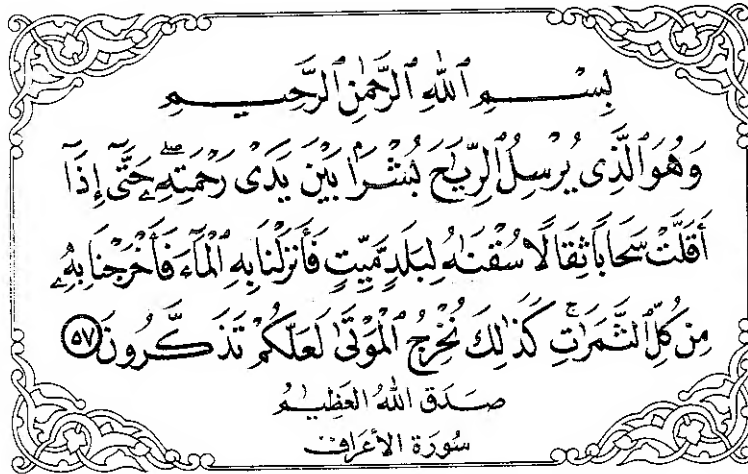 بِسْمِ ٱللَّهِ ٱلرَّحْمَٰنِ ٱلرَّحِيمِ
وَهُوَ ٱلَّذِى يُرْسِلُ ٱلرِّيَٰحَ بُشْرَۢا بَيْنَ يَدَىْ رَحْمَتِهِۦۖ حَتَّىٰٓ إِذَآ
أَقَلَّتْ سَحَابًا ثِقَالًا سُقْنَٰهُ لِبَلَدٍ مَّيِّتٍ فَأَنزَلْنَا بِهِ ٱلْمَآءَ فَأَخْرَجْنَا بِهِۦ
مِن كُلِّ ٱلثَّمَرَٰتِۚ كَذَٰلِكَ نُخْرِجُ ٱلْمَوْتَىٰ لَعَلَّكُمْ تَذَكَّرُونَ ٥٧
صَدَقَ اللهُ العَظِيمُ
سُورَة الأَعْرَاف